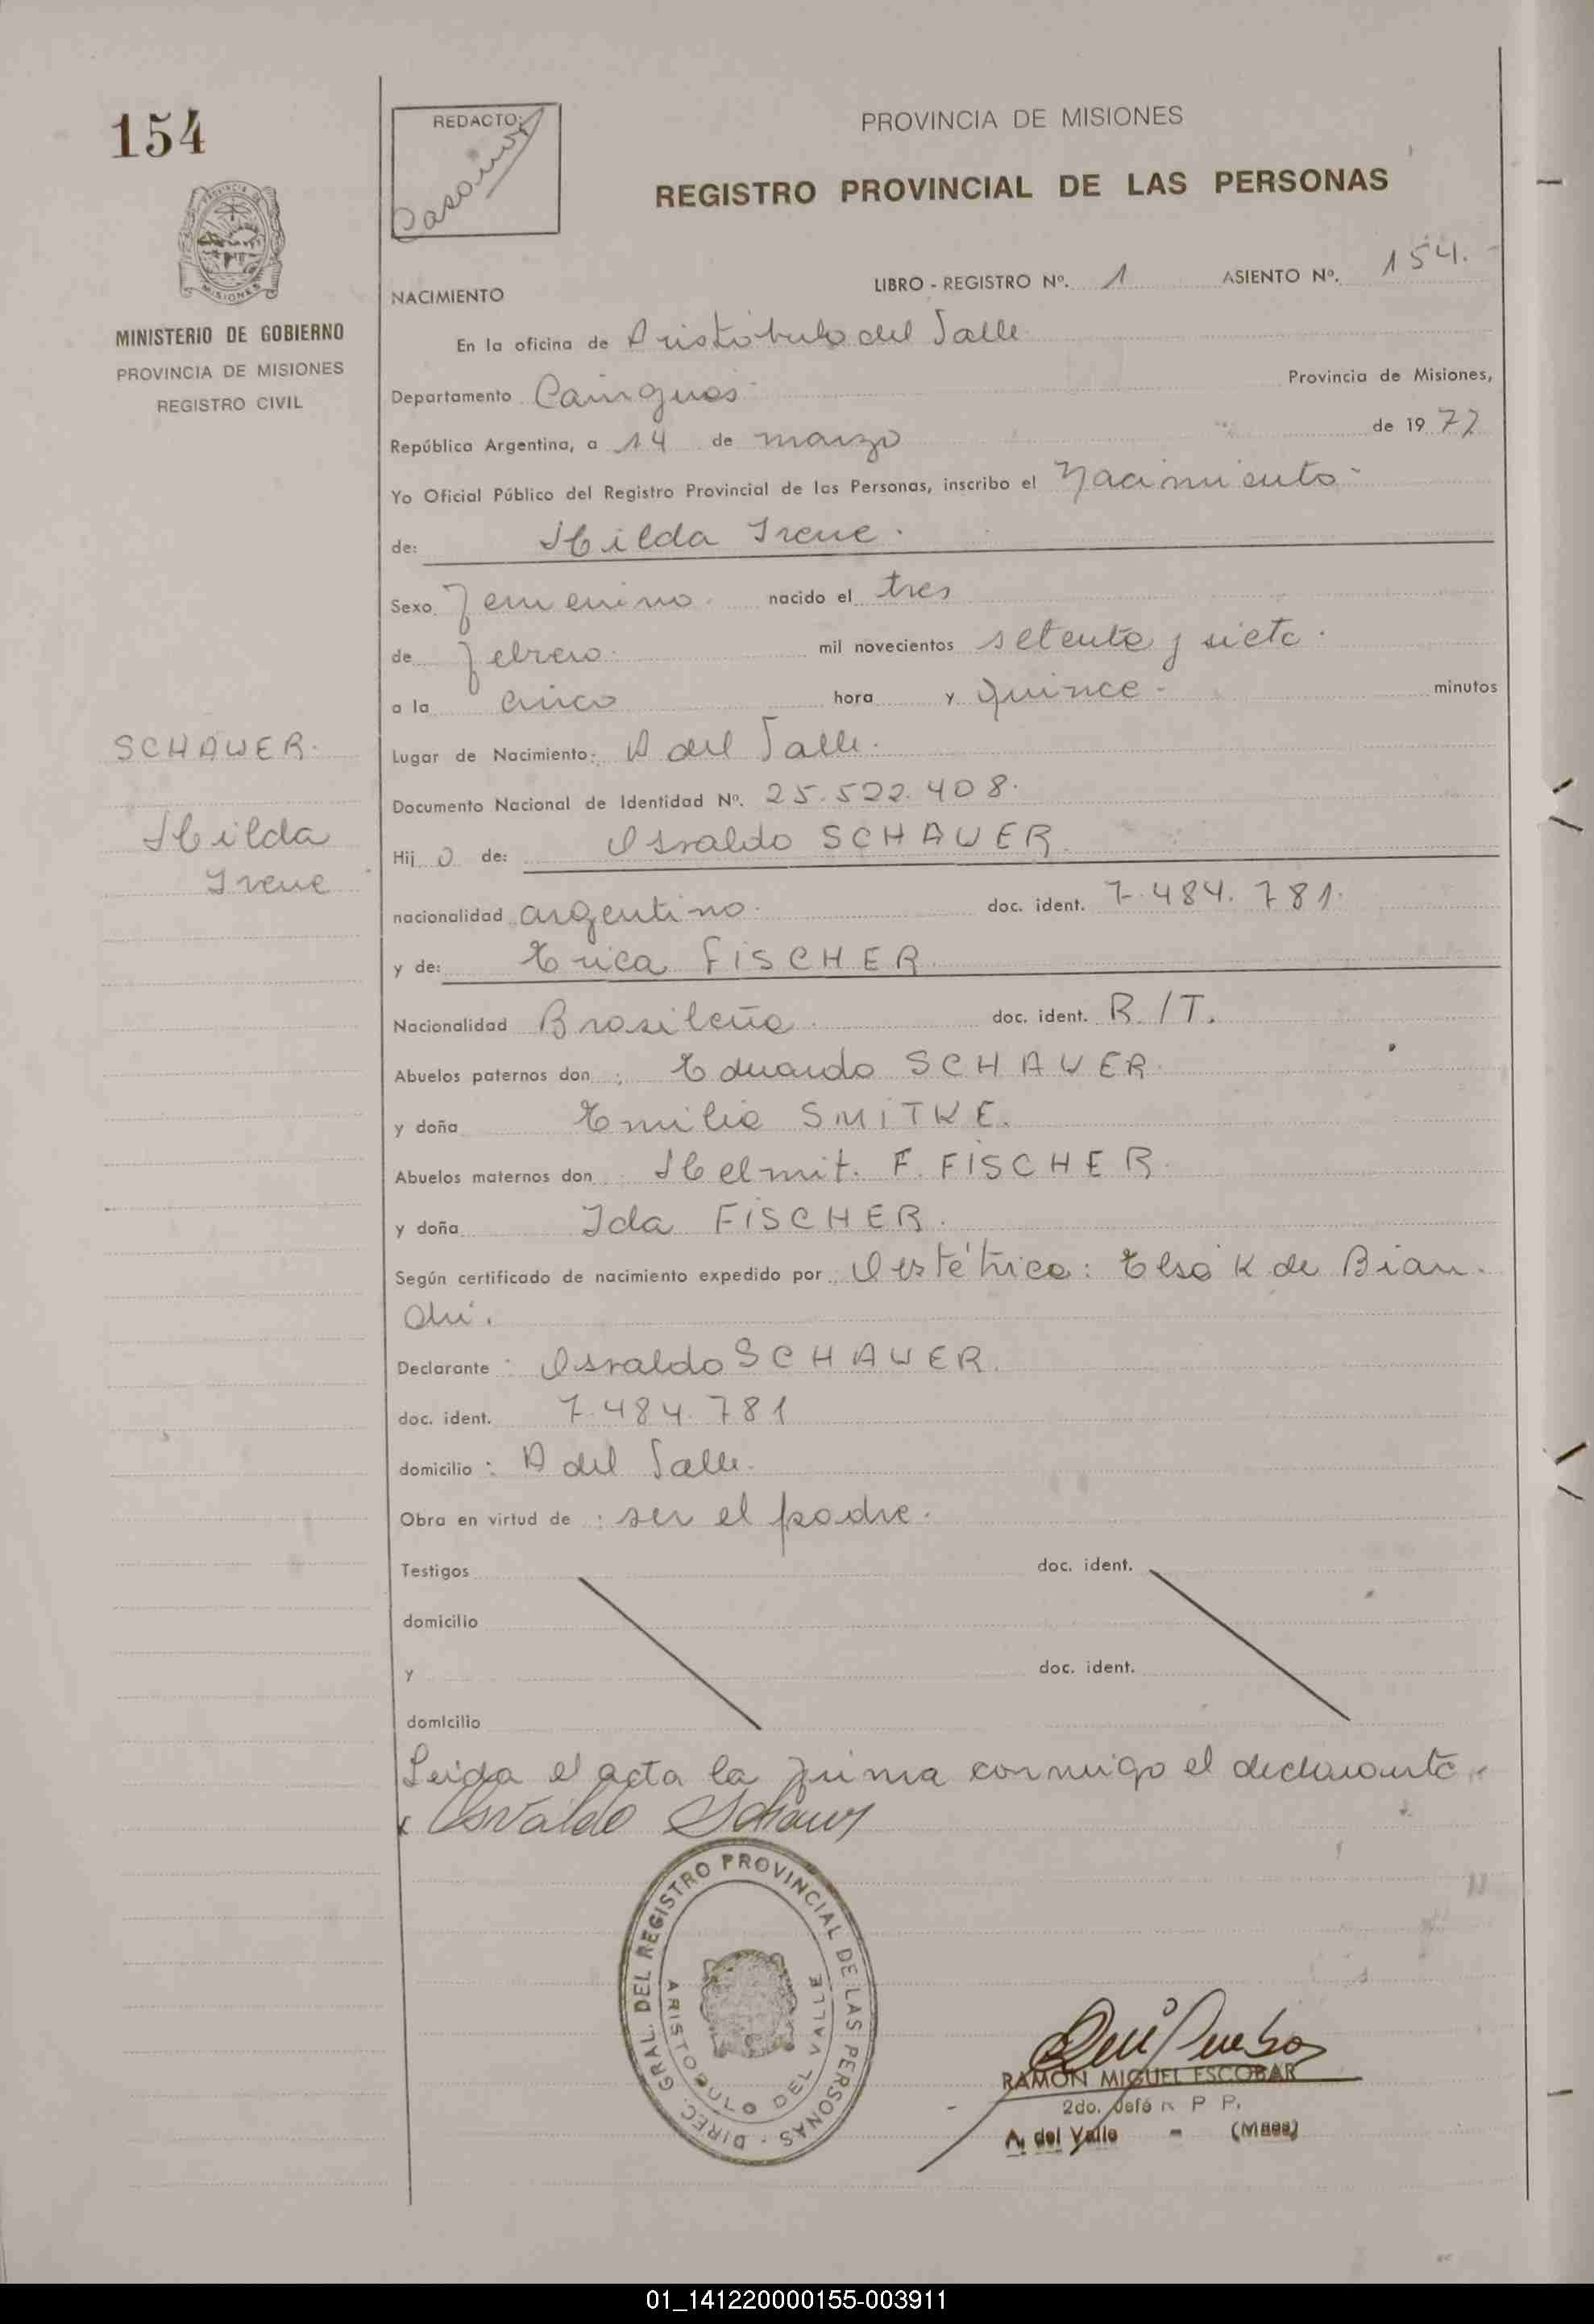 154
REDACTO:
PROVINCIA DE MISIONES
REGISTRO PROVINCIAL DE LAS PERSONAS
MISIONES
MINISTERIO DE GOBIERNO
PROVINCIA DE MISIONES
REGISTRO CIVIL
LIBRO - REGISTRO Nº. 1 ASIENTO Nº. 154.
NACIMIENTO
En la oficina de Aristóbulo del Valle
Departamento Cainguas Provincia de Misiones,
República Argentina, a 14 de marzo de 1977
Yo Oficial Público del Registro Provincial de las Personas, inscribo el Nacimiento
de: Hilda Irene.
Sexo Femenino. nacido el tres
de febrero. mil novecientos setenta y siete.
a la cinco hora y quince - minutos
SCHAUER.
Hilda
Irene
Lugar de Nacimiento: A del Valle.
Documento Nacional de Identidad Nº. 25.522.408.
Hij o de: Osvaldo SCHAUER.
nacionalidad argentino. doc. ident. 7.484.781.
y de: Erica FISCHER.
Nacionalidad Brasileña. doc. ident. R./T.
Abuelos paternos don : Eduardo SCHAUER.
y doña Emilia SMITKE.
Abuelos maternos don : Helmit. F. FISCHER.
y doña Ida FISCHER.
Según certificado de nacimiento expedido por : Obstétrica: Elsa K de Bian-
chi.
Declarante : Osvaldo SCHAUER.
doc. ident. 7.484.781
domicilio : A del Valle.
Obra en virtud de : ser el padre.
Testigos doc. ident.
domicilio
y doc. ident.
domicilio
Leida el acta la firma conmigo el declarante.
x Osvaldo Schauer
DIREC. GRAL. DEL REGISTRO PROVINCIAL DE LAS PERSONAS
ARISTOBULO DEL VALLE
RAMON MIGUEL ESCOBAR
2do. Jefe R P P.
A. del Valle - (Mnes)
01_141220000155-003911